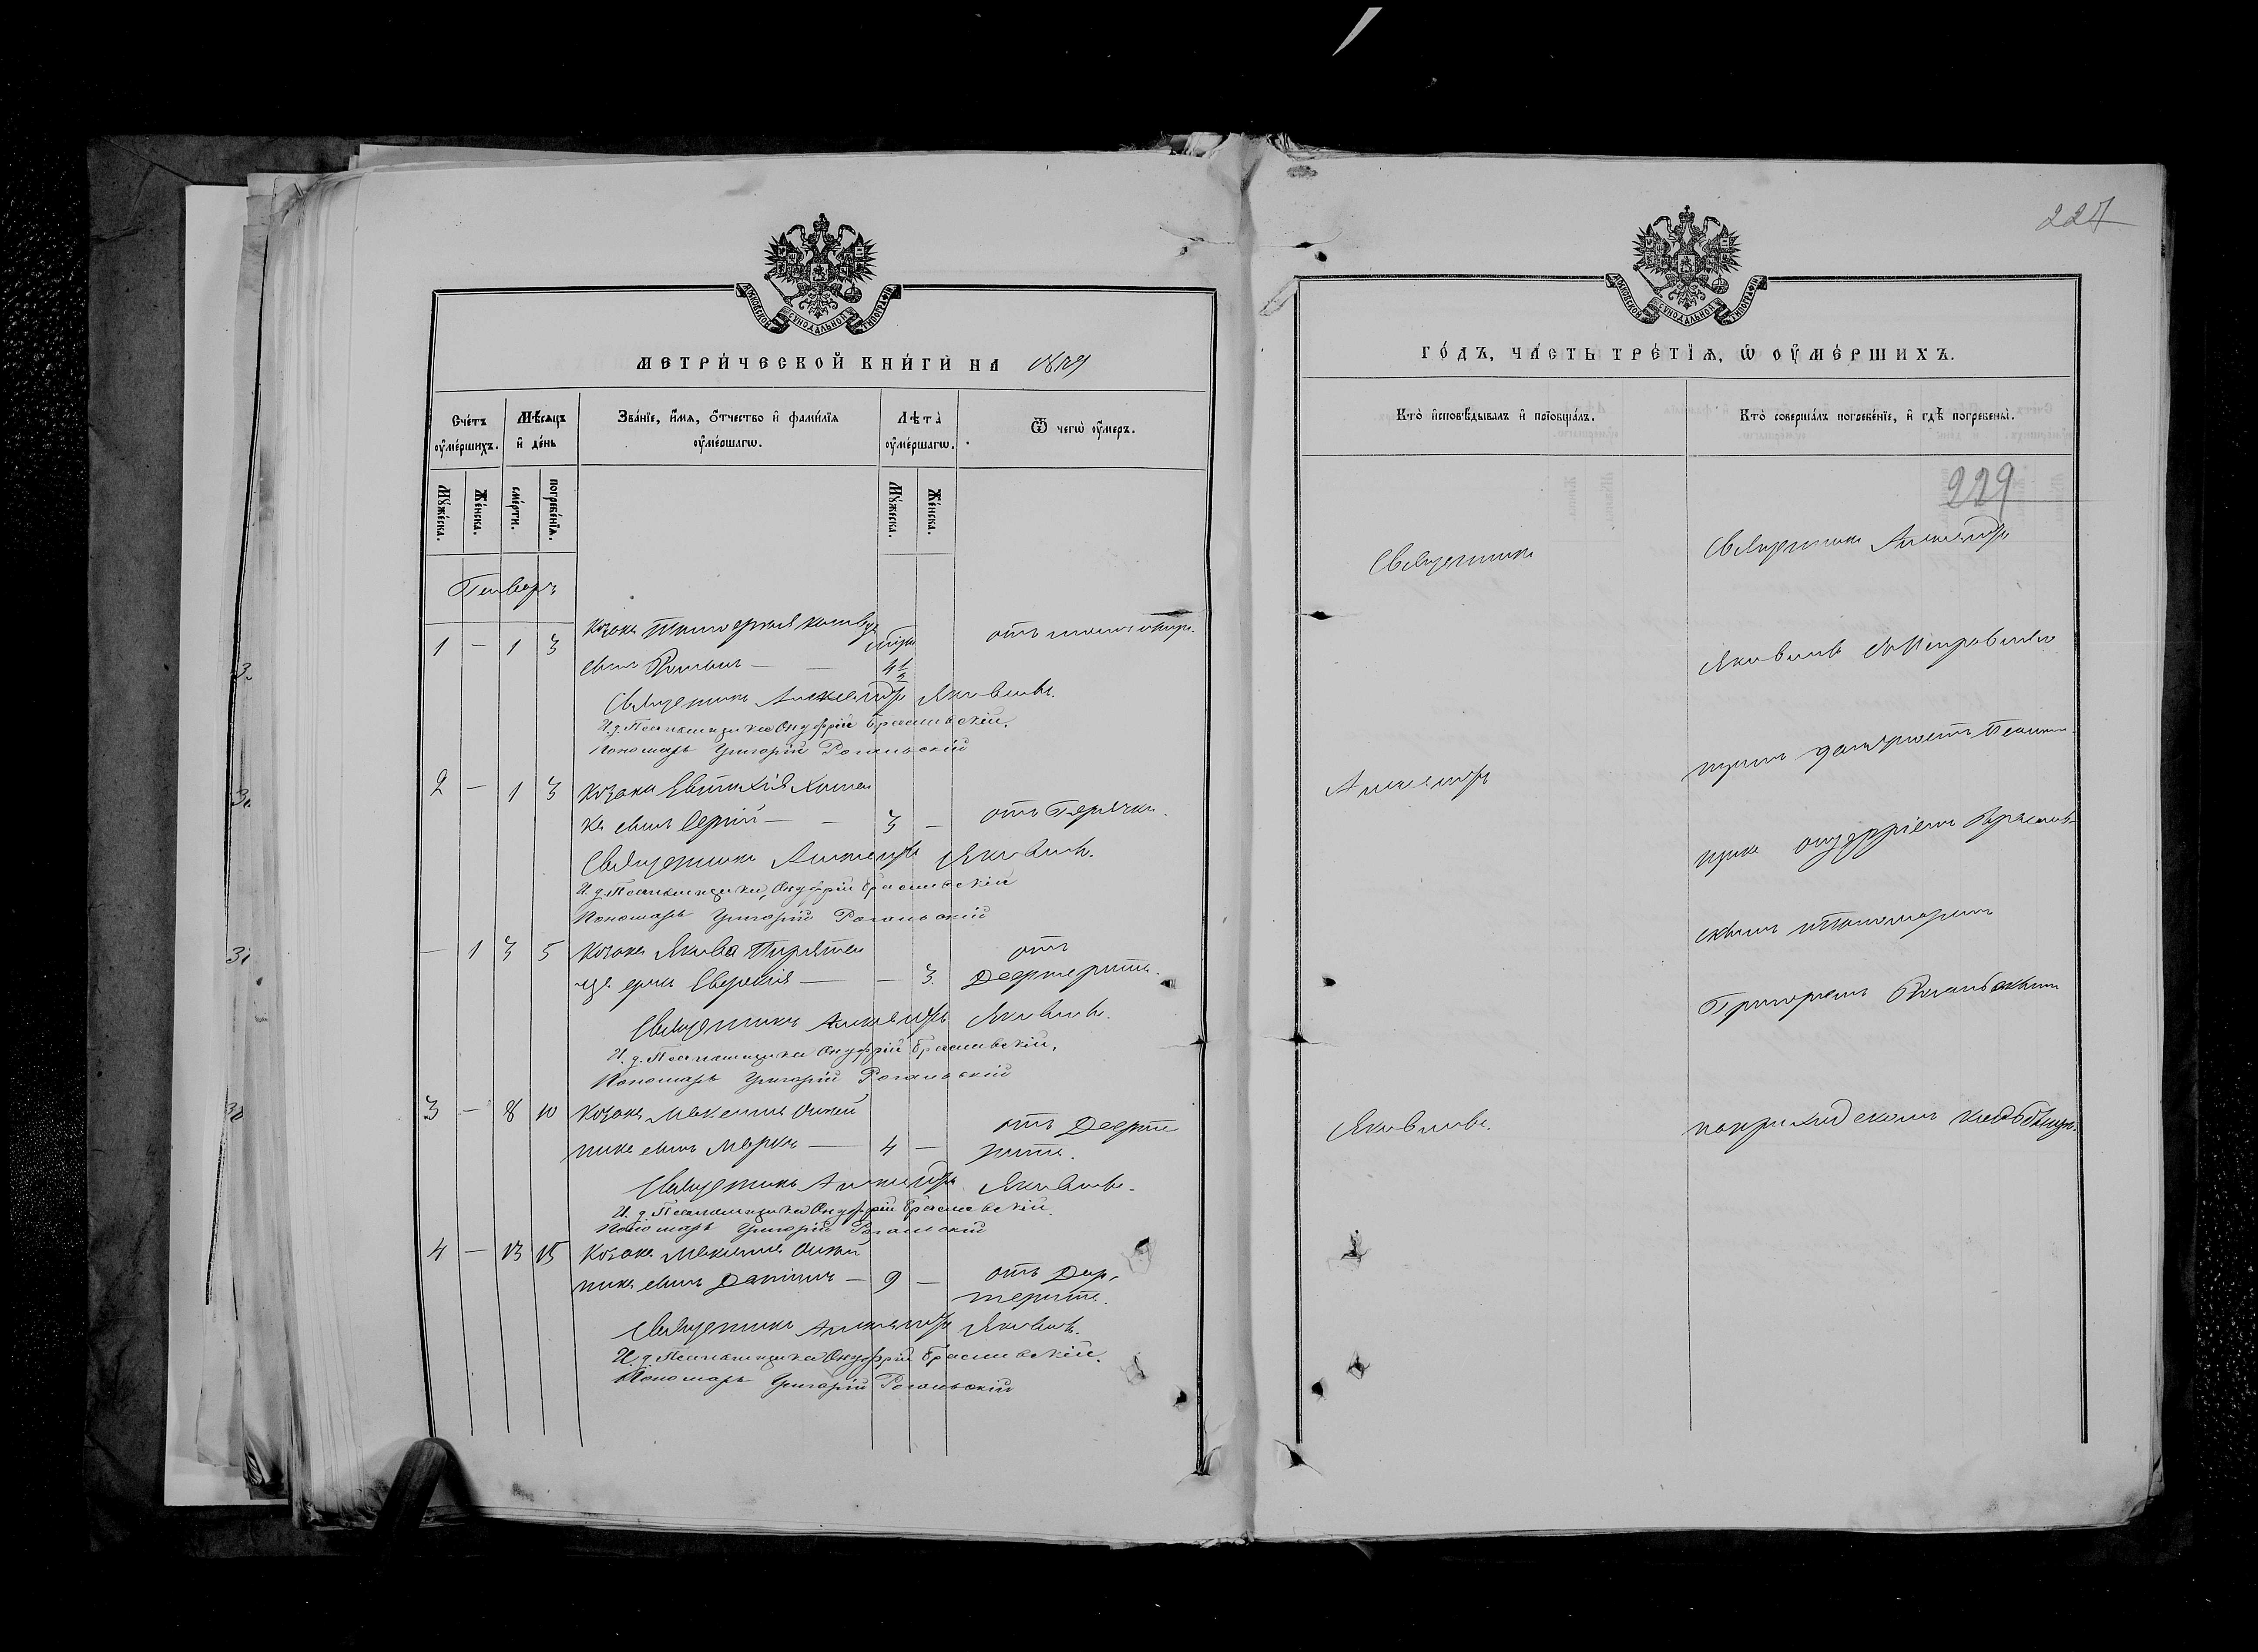 227
МОСКОВСКОЙ СѴНОДАЛЬНОЙ ТИПОГРАФІИ
МЕТРИ́ЧЕСКОЙ КНИ́ГИ НА 1879
Сче́тъ оу҆ме́ршихъ.
Мѣ́сяцъ и҆ де́нь
Зва́нїе, и҆́мя, ѻ҆́тчество и҆ фами́лїя оу҆ме́ршагѡ.
Лѣ́та̀ оу҆ме́ршагѡ.
Ѿ чегѡ̀ оу҆́меръ.
Мꙋ́жеска.
Же́нска.
сме́рти.
погребе́нїя.
Мꙋ́жеска.
Же́нска.
Генваръ
1 — 1 3 Козака
сынъ Романъ — — 4½
Священникъ Александръ Яковлевъ.
И. д. Псаломщика Онуфрій Браславскій.
Пономарь Григорій Рогальскій
2 — 1 3 Козака Евтихія
ка сынъ Сергій — — 3 — отъ Горячки.
Священникъ Александръ Яковлевъ.
И. д. Псаломщика Онуфрій Браславскій
Пономарь Григорій Рогальскій
— 1 3 5 Козака Якова отъ
дочь Евдокія — — 3. Дефтерита.
Священникъ Александръ Яковлевъ.
И. д. Псаломщика Онуфрій Браславскій,
Пономарь Григорій Рогальскій
3 — 8 10 Козака Максима
сынъ Марко — 4 — отъ Дефте
рита.
Священникъ Александръ Яковлевъ.
И. д. Псаломщика Онуфрій Браславскій.
Пономарь Григорій Рогальскій
4 — 13 15 Козака Максима
сынъ Даніилъ — 9 — отъ Деф,
терита.
Священникъ Александръ Яковлевъ.
И. д. Псаломщика Онуфрій Браславскій.
Пономарь Григорій Рогальскій
МОСКОВСКОЙ СѴНОДАЛЬНОЙ ТИПОГРАФІИ
ГО́ДЪ, ЧА́СТЬ ТРЕ́ТЇѦ, Ѡ҆ ОУ҆МЕ́РШИХЪ.
Кто̀ и҆сповѣ́дывалъ и҆ прїобща́лъ.
Кто̀ соверша́лъ погребе́нїе, и҆ гдѣ̀ погребены̀.
229
Священникъ
Александръ
Яковлевъ.
Священникъ Александръ
Яковлевъ
Псалом
щика Онуфріемъ Браслав-
скимъ
Григоріемъ Рогальскимъ
на приходскомъ кладбищѣ.